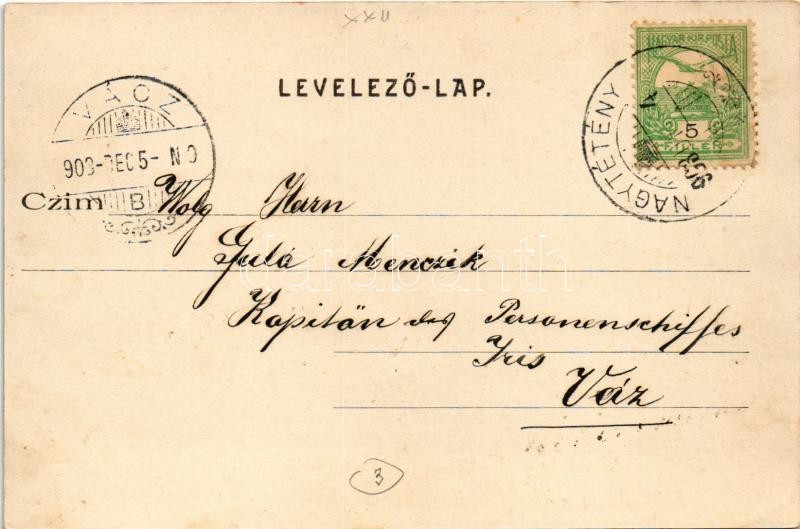 XXII
LEVELEZŐ-LAP.
MAGYAR KIR. POSTA
5
FILLÉR
NAGYTÉTÉNY
VÁCZ
903-DEC 5- N
B
Czim
Wolg Harn
Gulá Menczik
Kapitän des Personenschiffes
Iris
Váz
3
darabanth